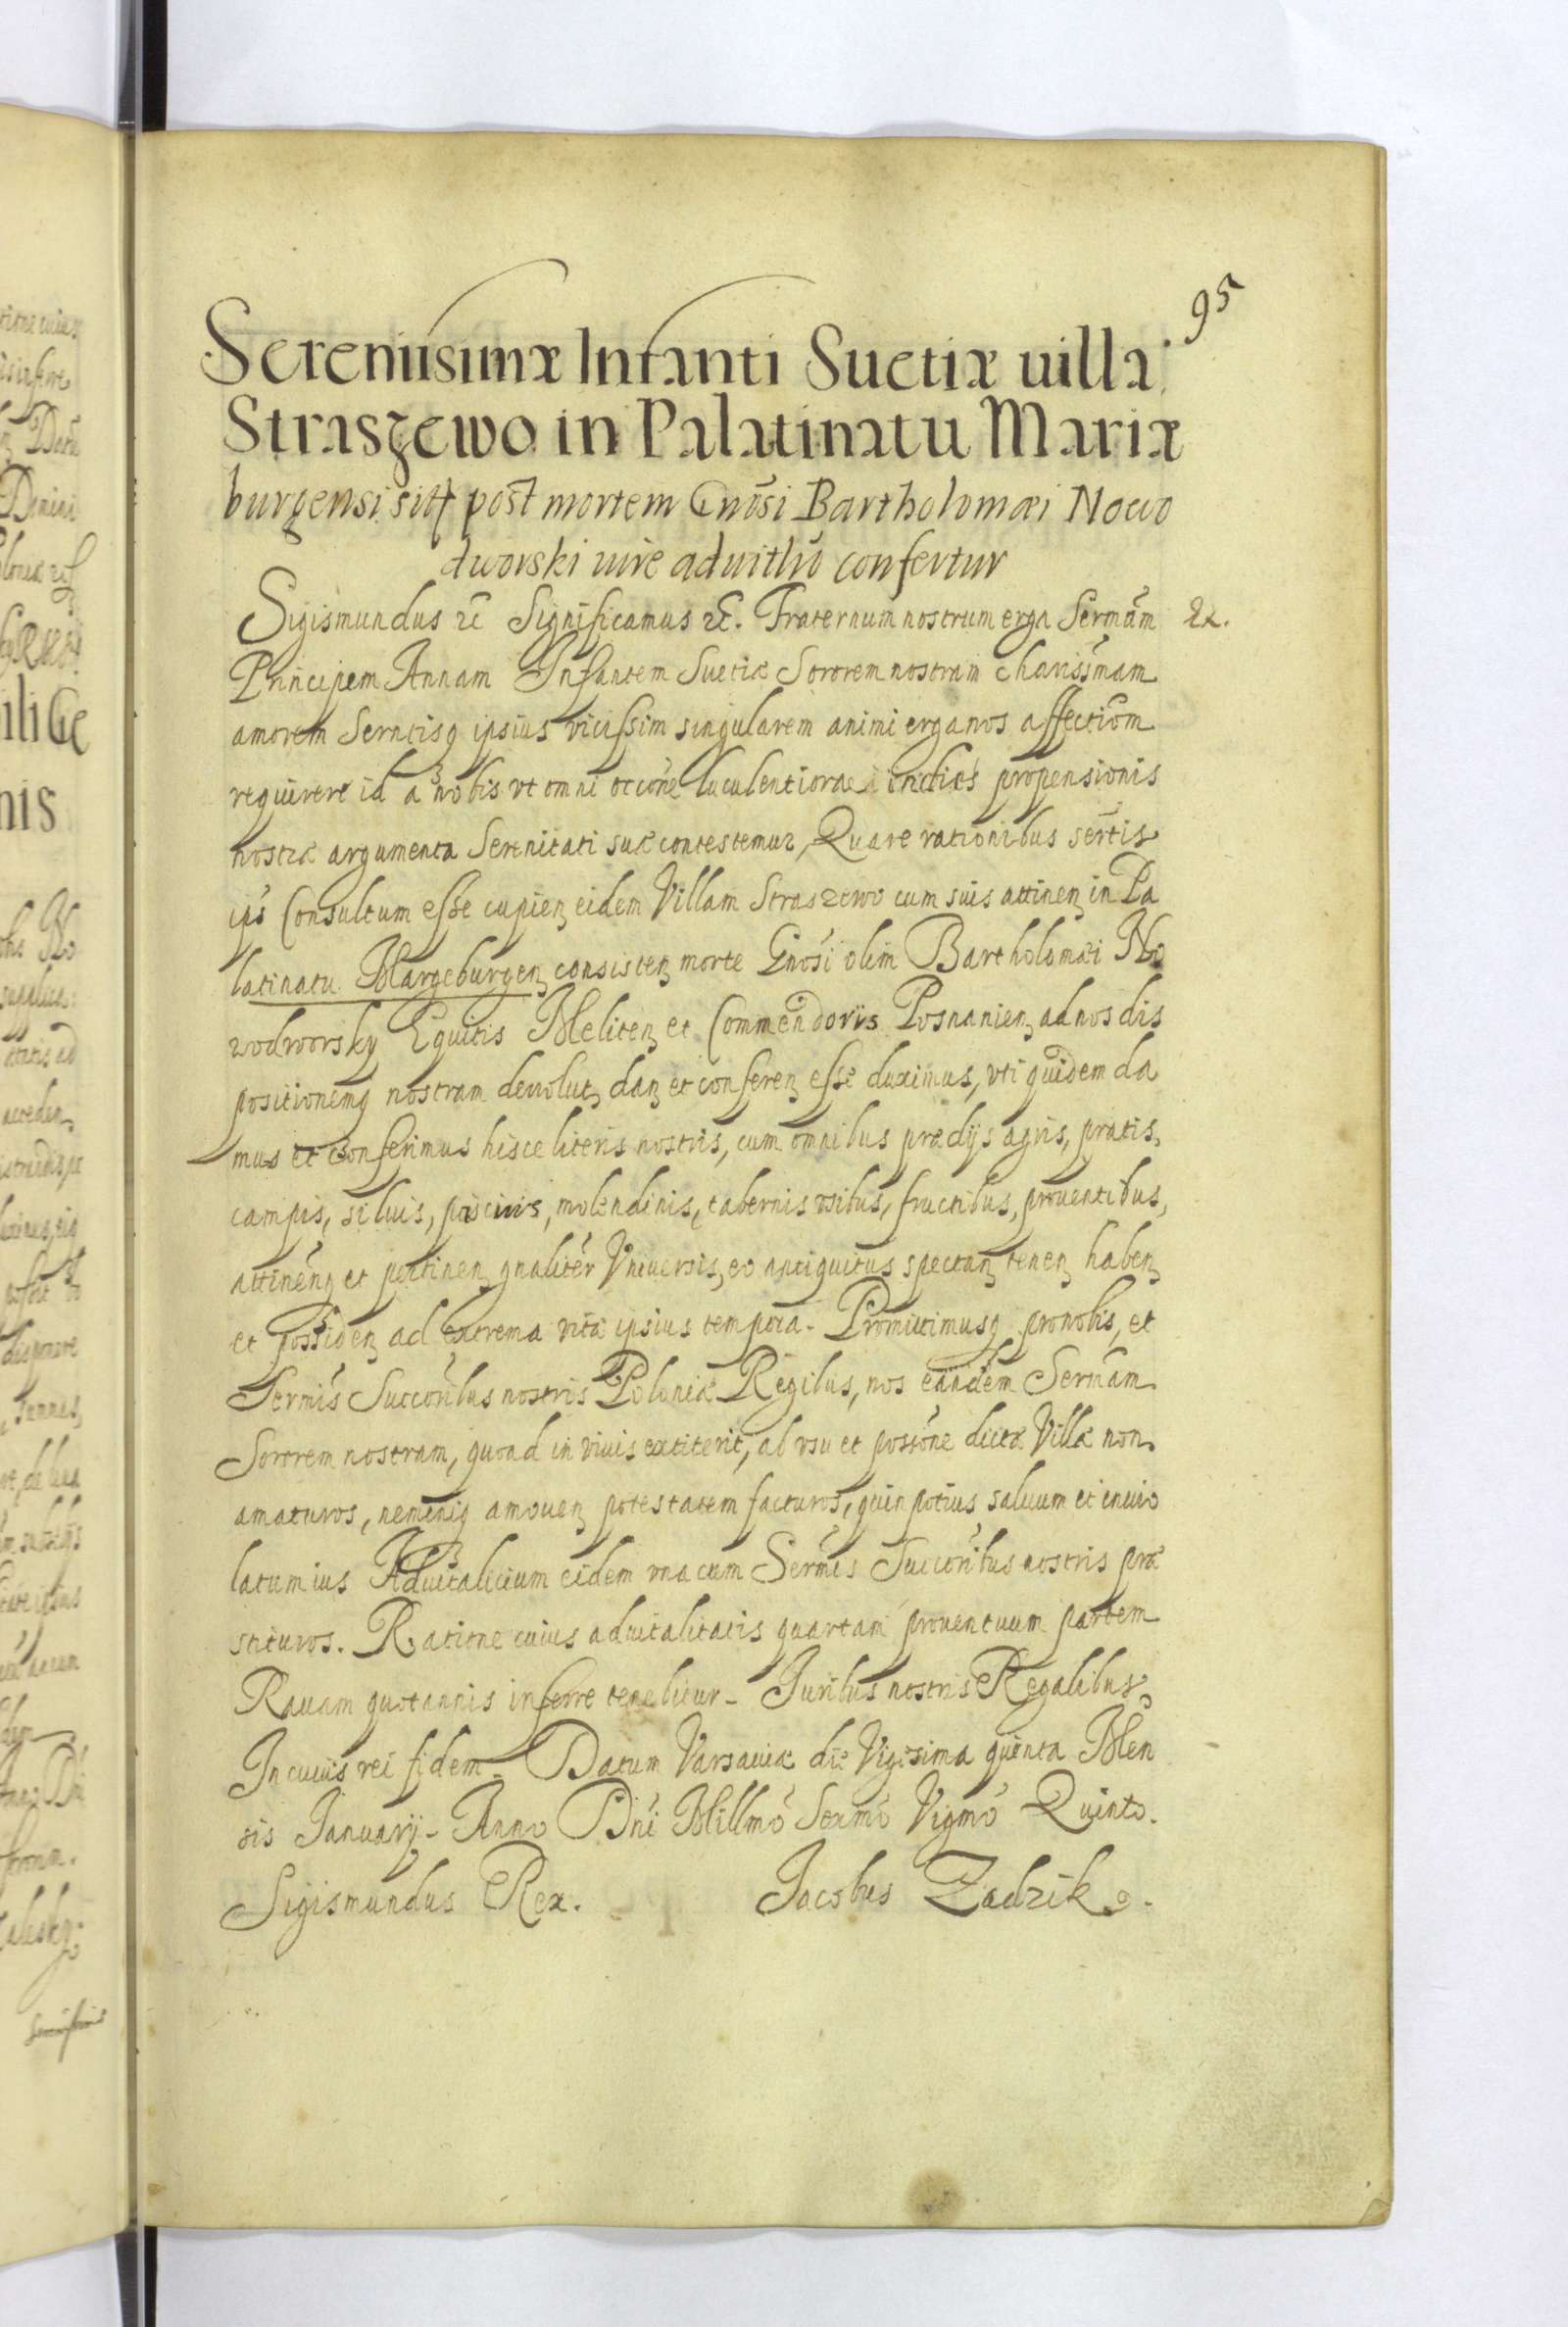 95
Sereniisimæ Infanti Suetiæ uilla
Straszewo in Palatinatu Mariæ
burgensi sita post mortem Gnosi Bartholomæi Nowo
dworski iure aduitliū confertur
Sigismundus etc Significamus etc. Fraternum nostrum erga Sermām
Principem Annam Infantem Suetiæ Sororem nostram charissmam
amorem Serntisq ipsius vicissim singularem animi erga nos affectiōm
requirere id a nobis vt omni occōne luculentiora indies propensionis
nostræ argumenta Serenitati suæ contestemur, Quare rationibus sertis
ips Consultum esse cupien eidem Villam Straszewo cum suis attinen in Pa
latinatu Margeburgen consisten morte Gnosi olim Bartholomæi No
wodworsky Equitis Meliten et Commendoris Posnanien ad nos dis
positionemq nostram deuolut, dan et conferen esse duximus, vti quidem da
mus et conferimus hisce literis nostris, cum omnibus prædijs agris, pratis,
campis, siluis, pascuis, molendinis, tabernis vsibus, fructibus, prouentibus,
attinenq et pertinen gnaliter Vniuersis, eo antiquitus spectan tenen haben
et possiden ad extrema vitæ ipsius tempora. Promittimusq pro nobis, et
Sermis Succoribus nostris Poloniæ Regibus, nos eandem Sermām
Sororem nostram, quoad in viuis extiterit, ab vsu et possōne dictæ Villæ non
amoturos, neminiq amouen potestatem facturos, quin potius saluum et inuio
latum ius Aduitalicium eidem vna cum Sermis Succoribus nostris præ
stituros. Ratione cuius aduitalitatis quartam prouentuum partem
Rauam quotannis inferre tenebitur. Iuribus nostris Regalibus
In cuius rei fidem. Datum Varsauiæ die Vigesima quinta Men
sis Ianuarij. Anno Dni Millmō Sexmō Vigmō Quinto.
Sigismundus Rex. Jacobus Zadzik.